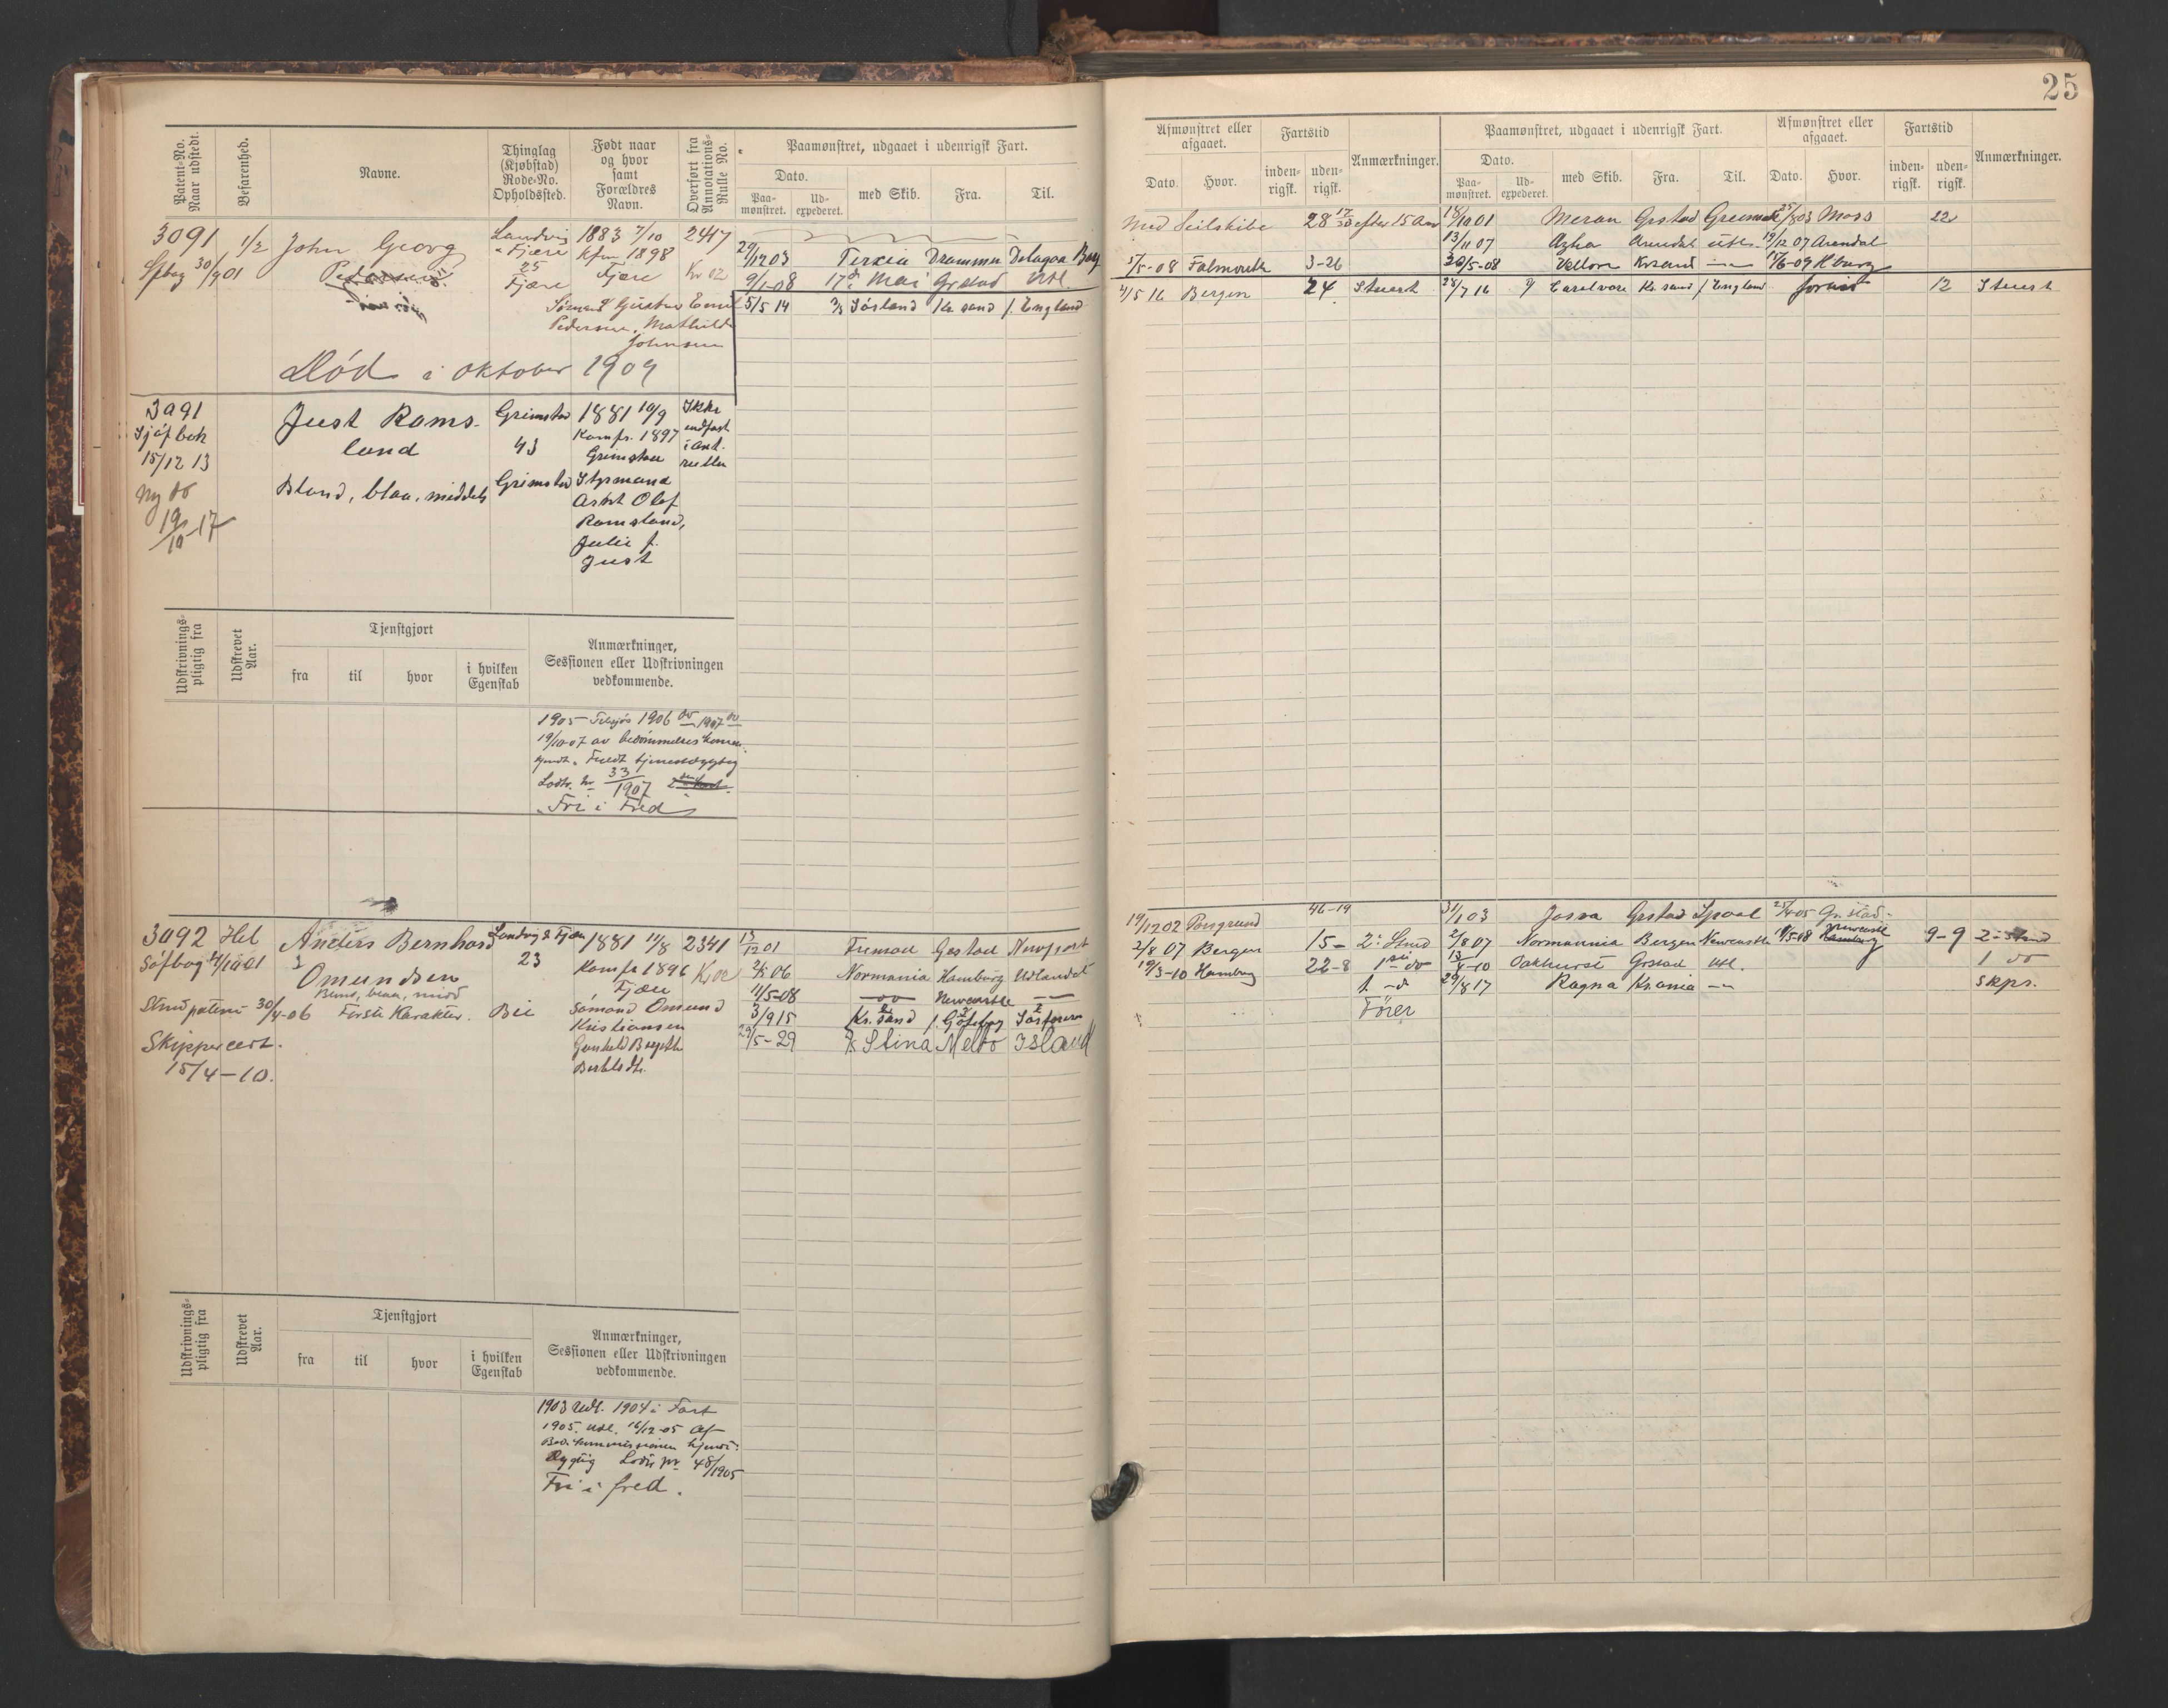 25
Patent-No. Naar udstedt.
Befarenhed.
Navne.
Thinglag (Kjøbstad) Rode-No. Opholdssted.
Født naar og hvor samt Forældres Navn.
Overført fra Annotations-Rulle No.
Paamønstret, udgaaet i udenrigsk Fart.
Dato.
Paa-mønstret. Ud-expederet. med Skib. Fra. Til.
3091 1/2 John Georg Landvig 1883 7/10 2417
Sfbog 30/9 01 Pedersen & Fjære Kfm 1898
25 Fjære Kr 02
Fjære
Gustav Emil
Pedersen, Mathilde
Johnsen
Død i Oktober 1909
29/12 03 Terxia Drammen Delagoa Bay
9/1-08 17de Mai Grstad Utl.
5/5 14 Jösland Kr. sand f. England
3091 Just Roms- Grimstad 1881 10/9 Ikke
Sjöf bok land 43 Komfr. 1897 indført
15/12 13 Grimstad i ant.
rullen
Ny do Blond, blaa, middels Grimstad Styrmand
19/10-17 Olaf
Romsland,
Julie f.
Just
Udskrivnings-pligtig fra
Udskrevet Aar.
Tjenstgjort
fra til hvor i hvilken Egenskab
Anmærkninger, Sessionen eller Udskrivningen vedkommende.
1905 Tilsjøs 1906 do 1907 do
19/10-07 av bedömmelses
kjendt. Fuldt tjenestdygtig
Lodtr. nr 33/1907
Fri i Fred
3092 Hel Anders Bernhard Landvig & Fjære 1881 11/8 2341
Søfbog 21/10 01 Omundsen 23 Komfr 1896 Kr 02
Blond, blaa, midd Fjære
Stmd patent 30/4-06 Første Karakter. Bie Sømand Omund
Kristiansen
Skippercert.
15/4-10.
13/12 01 Fremad Grstad Newport
06 Normania Hamborg Udlandet
11/5-08 — do — Newcastle —
3/9 15 Kr. sand f. Göteborg
29/5-29 Stina Island
Udskrivnings-pligtig fra
Udskrevet Aar.
Tjenstgjort
fra til hvor i hvilken Egenskab
Anmærkninger, Sessionen eller Udskrivningen vedkommende.
1903 Udl. 1904 i Fart
1905. utl. 16/12-05 Af
Bed. kommissionen kjendt
Dygtig Lodtr nr 48/1905
Fri i fred.
Afmønstret eller afgaaet.
Dato. Hvor.
Fartstid
inden-rigsk. uden-rigsk.
Anmærkninger.
Paamønstret, udgaaet i udenrigsk Fart.
Dato.
Paa-mønstret. Ud-expederet. med Skib. Fra. Til.
Afmønstret eller afgaaet.
Dato. Hvor.
Fartstid
inden-rigsk. uden-rigsk.
Anmærkninger.
Med Seilskibe 28 17/30 efter 15 Aar 18/10 01 Meran Grstad 25/8 03 Moss 22
13/11 07 Azha Arendal utl. 19/12 07 Arendal
5/5-08 Falmouth 3-26 20/5-08 Vellore Krsand — 15/6-09 Hburg
4/5 16 Bergen 24 Stuert 28/7 16 Kr. sand f England forlist 12 Stuert
19/12 02 Porsgrund 46-19 31/1 03 Josva Grstad 2/4 05 Grstad
2/8 07 Bergen 15- 2: Stmd 2/8 07 Normannia Bergen Newcastle 11/5-08 Newcastle 9-9 2: Stmd
19/3-10 Hamburg 22-8 1ste do 13/4-10 Oakhurst Grstad Utl. 1 do
1 -d 29/8 17 Ragna Kr.ania — skps.
Fører